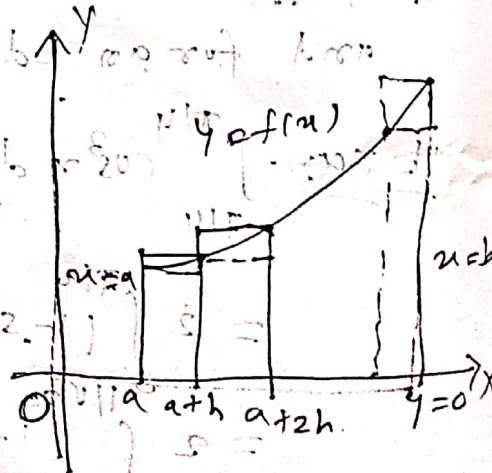 Y
y = f(x)
x = a
x = b
O
a
a+h
a+2h.
y=0
X